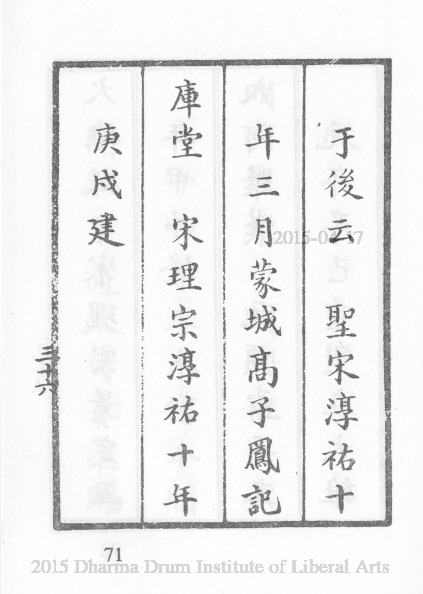 于後云 聖宋淳祐十
年三月蒙城髙子鳳記
庫堂 宋理宗淳祐十年
庚戌建
三十六
71
2015 Dharma Drum Institute of Liberal Arts